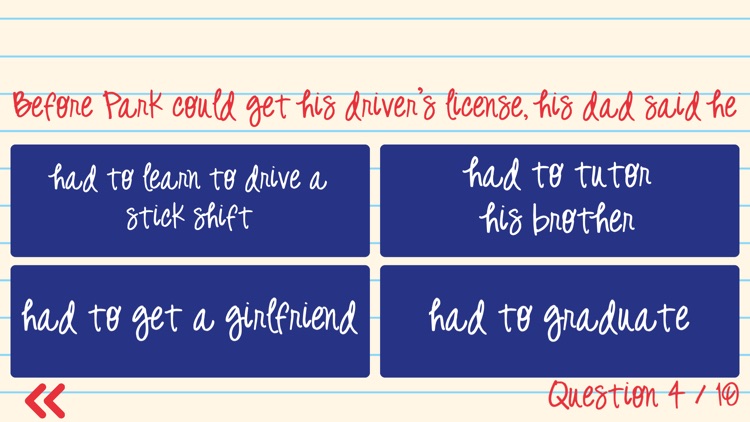 Before Park could get his driver's license, his dad said he
had to learn to drive a
stick shift
had to tutor
his brother
had to get a girlfriend
had to graduate
Question 4 / 10